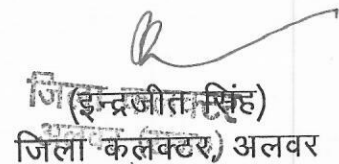 (इन्द्रजीत सिंह)
जिला कलक्टर, अलवर